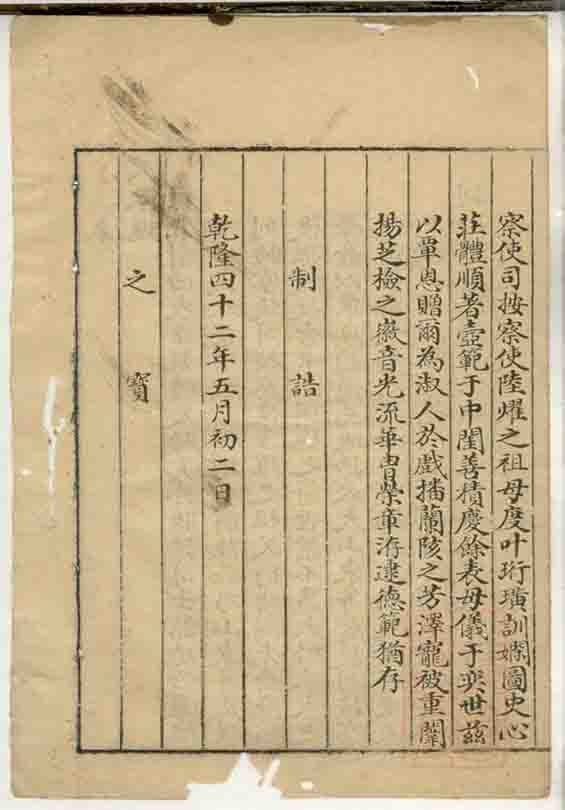 察使司按察使陸燿之祖母度叶珩璜訓嫻圖史心
莊體順著壼範于中閨善積慶餘表母儀于奕世茲
以覃恩贈爾為淑人於戲播蘭陔之芳澤寵被重闈
揚芝檢之徽音光流華胄榮章洊逮德範猶存
制誥
乾隆四十二年五月初二日
之寶